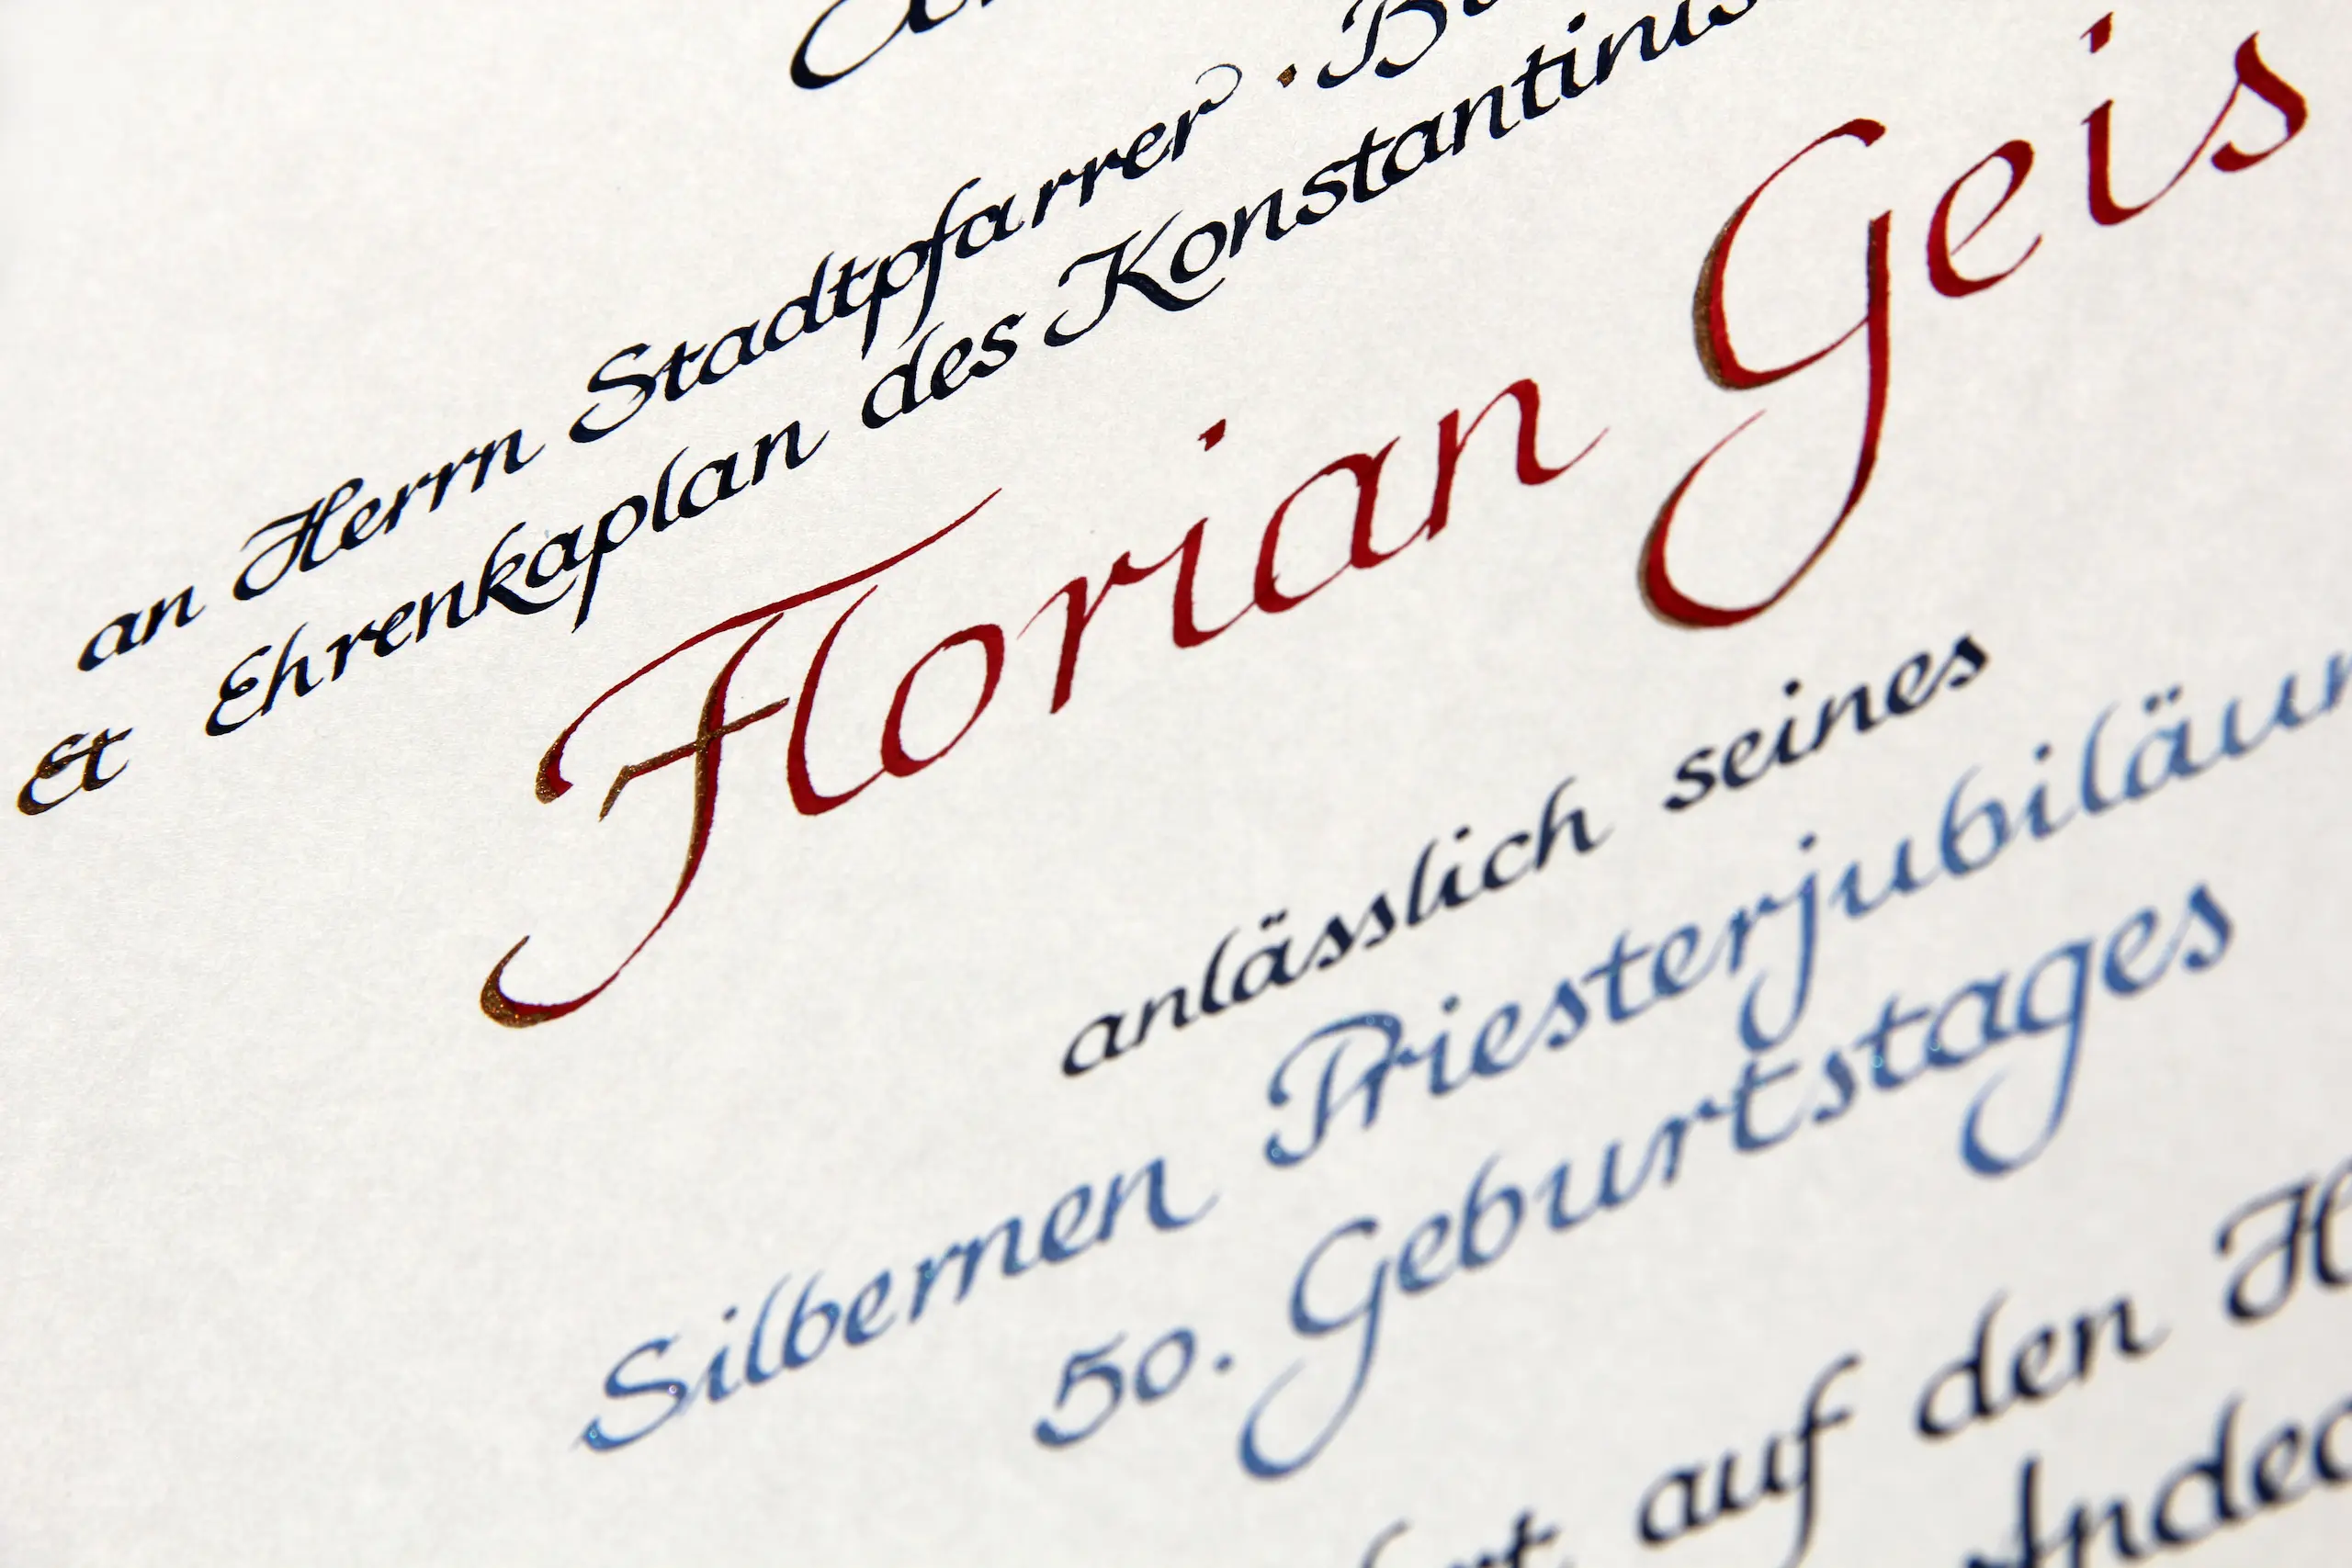 an Herrn Stadtpfarrer ·
Et Ehrenkaplan des Konstantinus
Florian Geis
anlässlich seines
Silbernen
50. Geburtstages
auf den